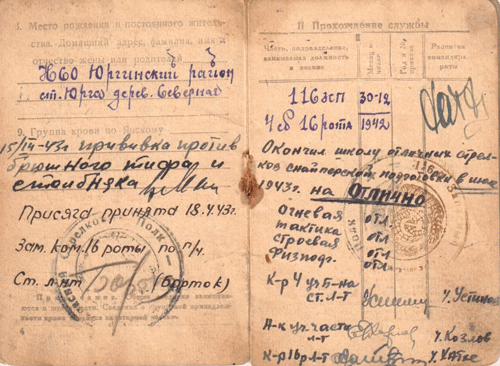 8. Место рождения и постоянного житель-
ства. Домашний адрес, фамилия, имя и
отчество жены или родителей
НСО Юргинский район
ст. Юрга дерев. Северная
9. Группа крови по Янскому
15/IV-43г прививка против
брюшного тифа и
столбняка
Присяга принята 18.4.43г.
Зам. ком. 16 роты по п/ч.
Ст. л-нт (Барток)
Примечание.
4
II Прохождение службы
Часть, подразделение,
занимаемая должность
и звание
116 зсп 30-12
4 сб 16 рота 1942
Окончил школу отличных стрел-
ков снайперской подготовки в
1943г. на Отлично
Огневая отл.
тактика отл.
строевая отл.
физпод. отл.
К-р 4 уч. б-на
ст. л-т У. Устинов
Н-к уч. части
л-т У. Козлов
К-р 16 р л-т